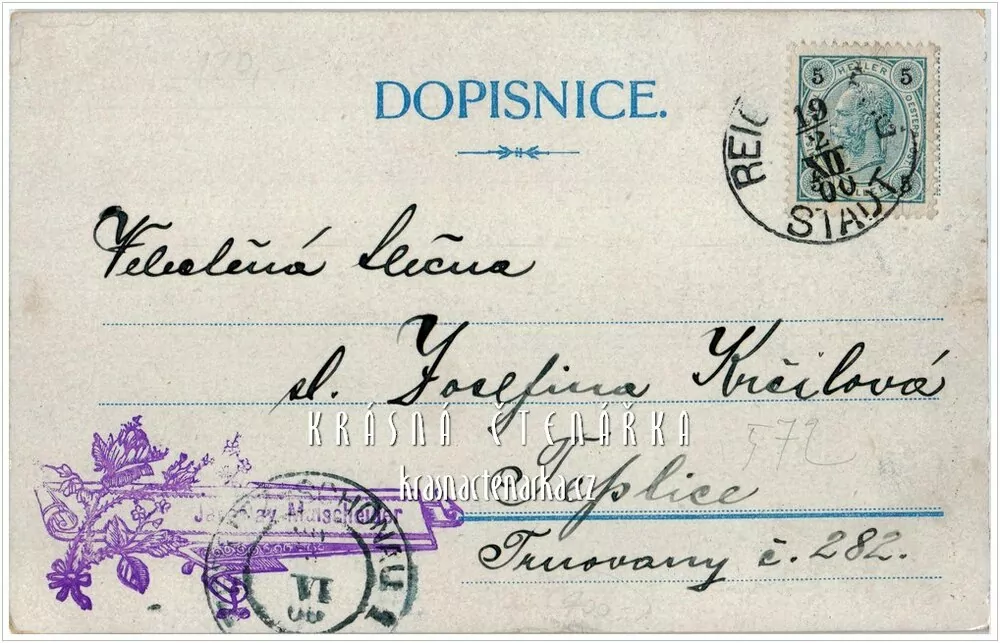 DOPISNICE.
5 HELLER 5
19
2
XII
00
STADT
Velectěná slečna
sl. Josefina Krčilová
KRÁSNÁ ČTENÁŘKA
572
krasnactenarka.cz
Teplice
Trnovany č. 282.
VI
00